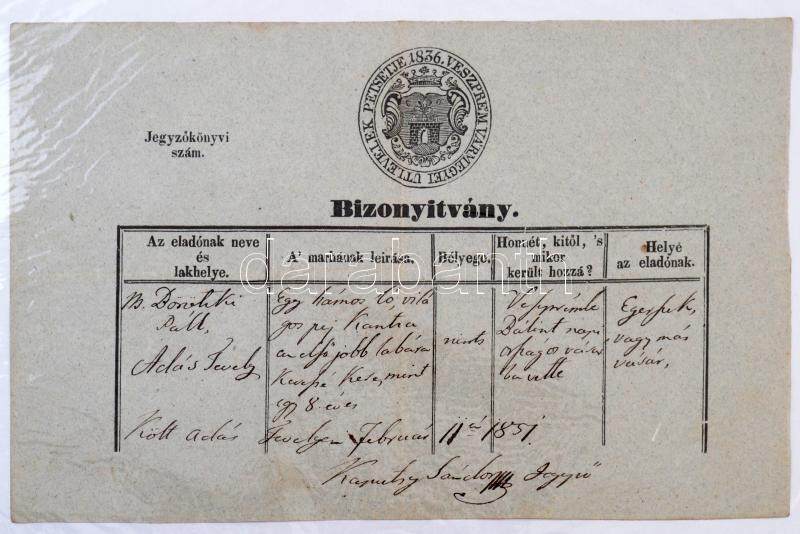 VESZPRÉM VÁRMEGYEI ÚTLEVELEK PETSÉTJE 1836.
Jegyzőkönyvi
szám.
Bizonyitvány.
Az eladónak neve
és
lakhelye.
A' marhának leirása.
Bélyege.
Honnét, kitől, 's
mikor
került hozzá?
Helye
az eladónak.
Páll,
Adás Tevely
Egy hámos ló, vilá
gos pej Kantza
az első jobb lábára
Kevésé Kese, mint
egy 8 éves
nints
Veszprémbe
Bálint napi
országos vásár
ba vette
vagy más
vásár,
Költ Adás Tevelyen Február 11én 1851.
Sándor Jegyző
darabanth